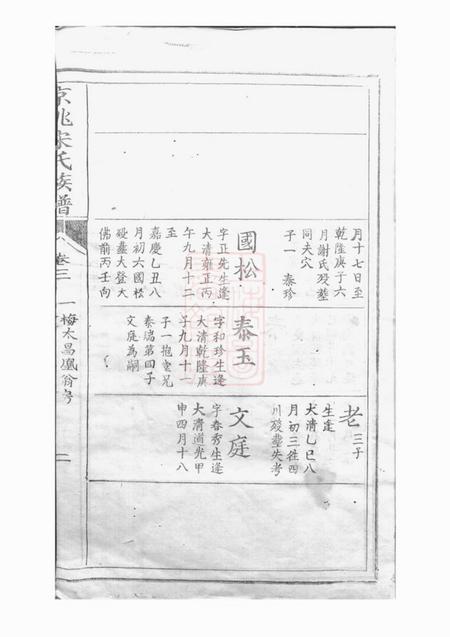 月十七日至
乾隆庚子六
月謝氏歿塟
同夫穴
子一 泰珍
國松
字正先生逢
大清雍正丙
午九月十二
至
嘉慶乙丑八
月初六國松
歿塟大登大
佛前丙壬向
泰玉
字和珍生逢
大清乾隆庚
子九月十一
子一抱堂兄
泰瑞第四子
文庭為嗣
老三子
生逢
大清乙巳八
月初三往四
川歿塟失考
文庭
字春秀生逢
大清道光甲
申四月十八
京兆宋氏族譜
八卷三
一梅木昌鳳翁房
二